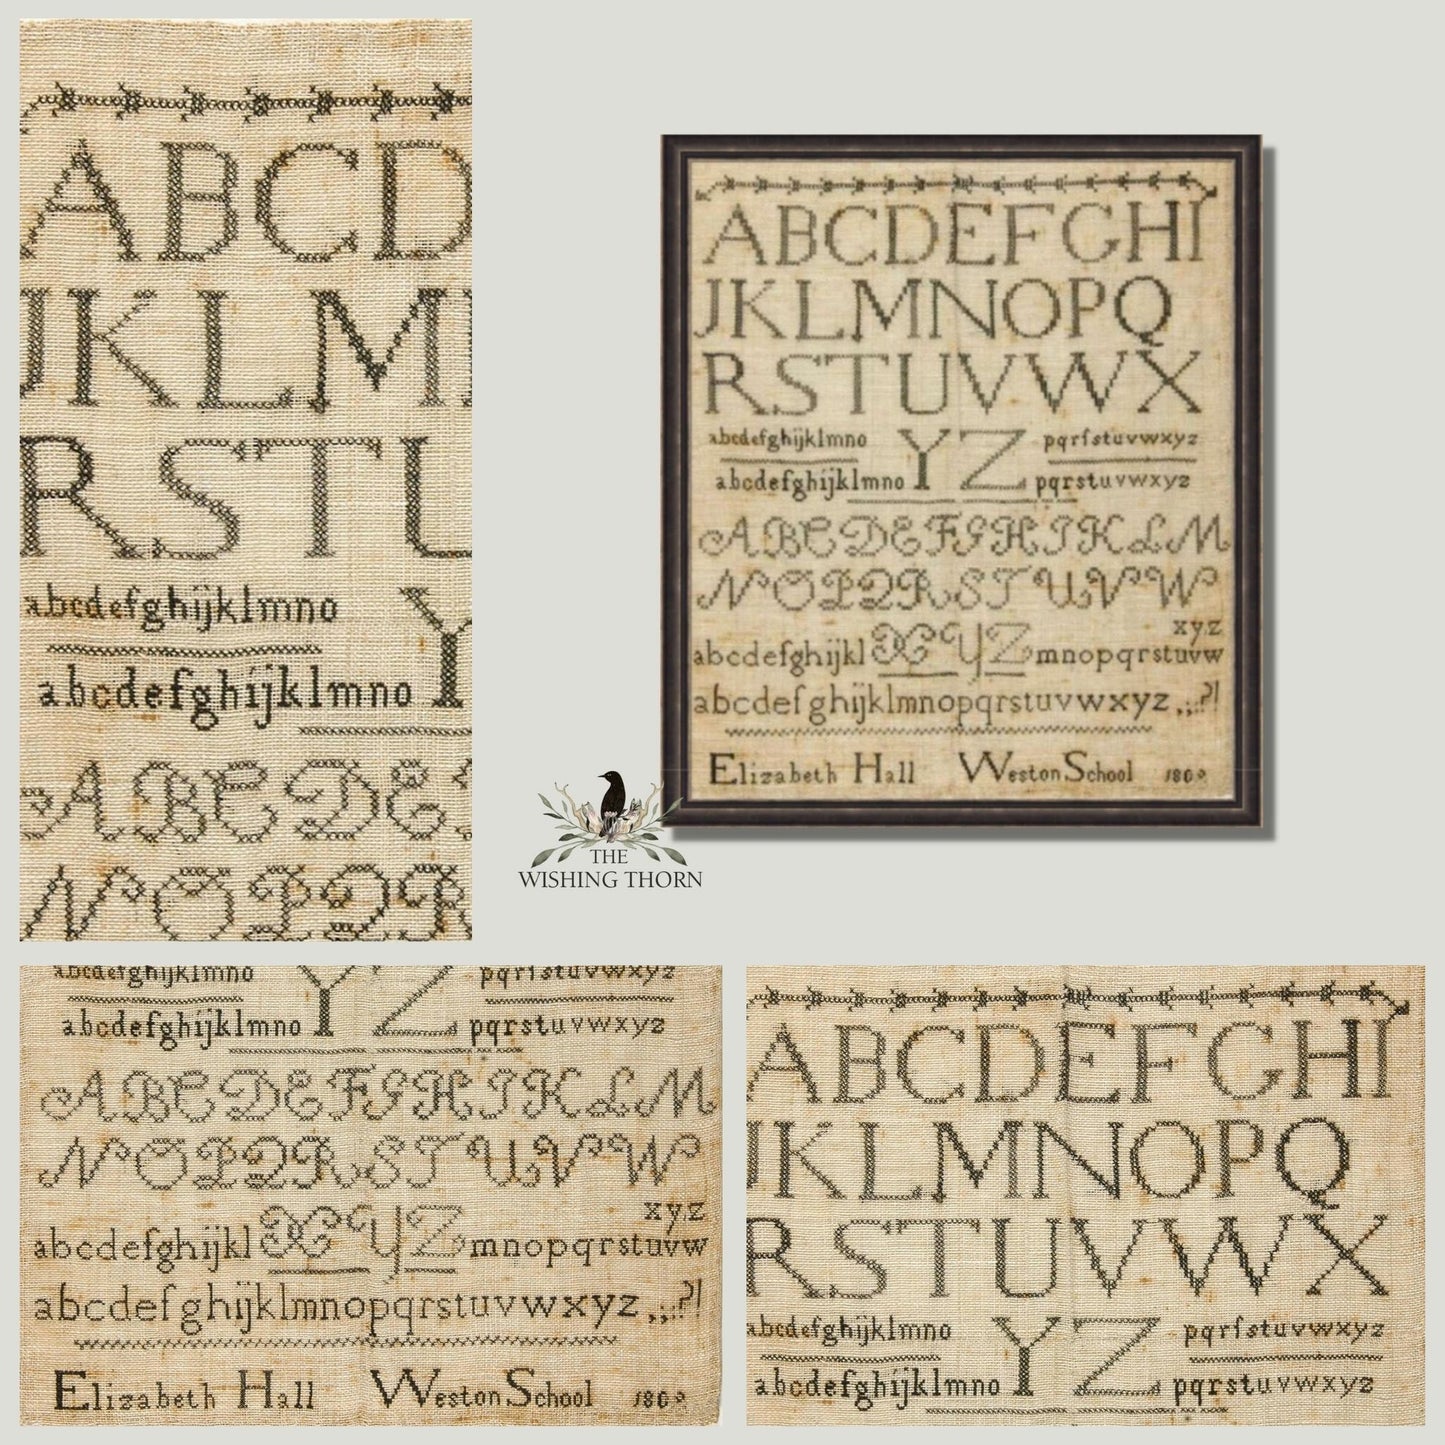 ABCD
JKLM
RSTU
abcdefghijklmno
Y
abcdefghijklmno
ABCDE
NOPQR
ABCDEFGHI
JKLMNOPQ
RSTUVWX
abcdefghijklmno YZ pqrſstuvwxyz
abcdefghijklmno pqrstuvwxyz
ABCDEFGHIJKLM
NOPQRSTUVW
xyz
abcdefghijkl XYZ mnopqrstuvw
abcdefghijklmnopqrstuvwxyz ,;:.?!
Elizabeth Hall Weston School
THE
WISHING THORN
abcdefghijklmno YZ pqrſstuvwxyz
abcdefghijklmno pqrstuvwxyz
ABCDEFGHIJKLM
NOPQRSTUVW
xyz
abcdefghijkl XYZ mnopqrstuvw
abcdefghijklmnopqrstuvwxyz ,;:.?!
Elizabeth Hall Weston School
ABCDEFGHI
JKLMNOPQ
RSTUVWX
abcdefghijklmno YZ pqrſstuvwxyz
abcdefghijklmno pqrstuvwxyz